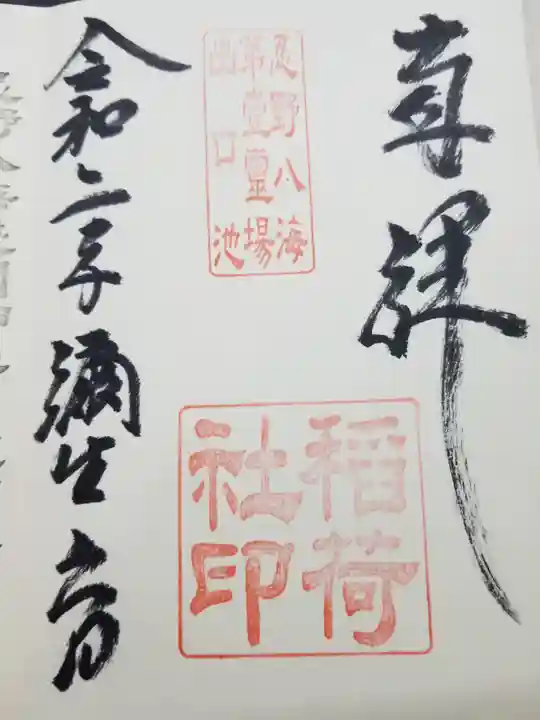 奉拝
忍野八海
第壱霊場
出口池
稲荷
社印
令和二年彌生